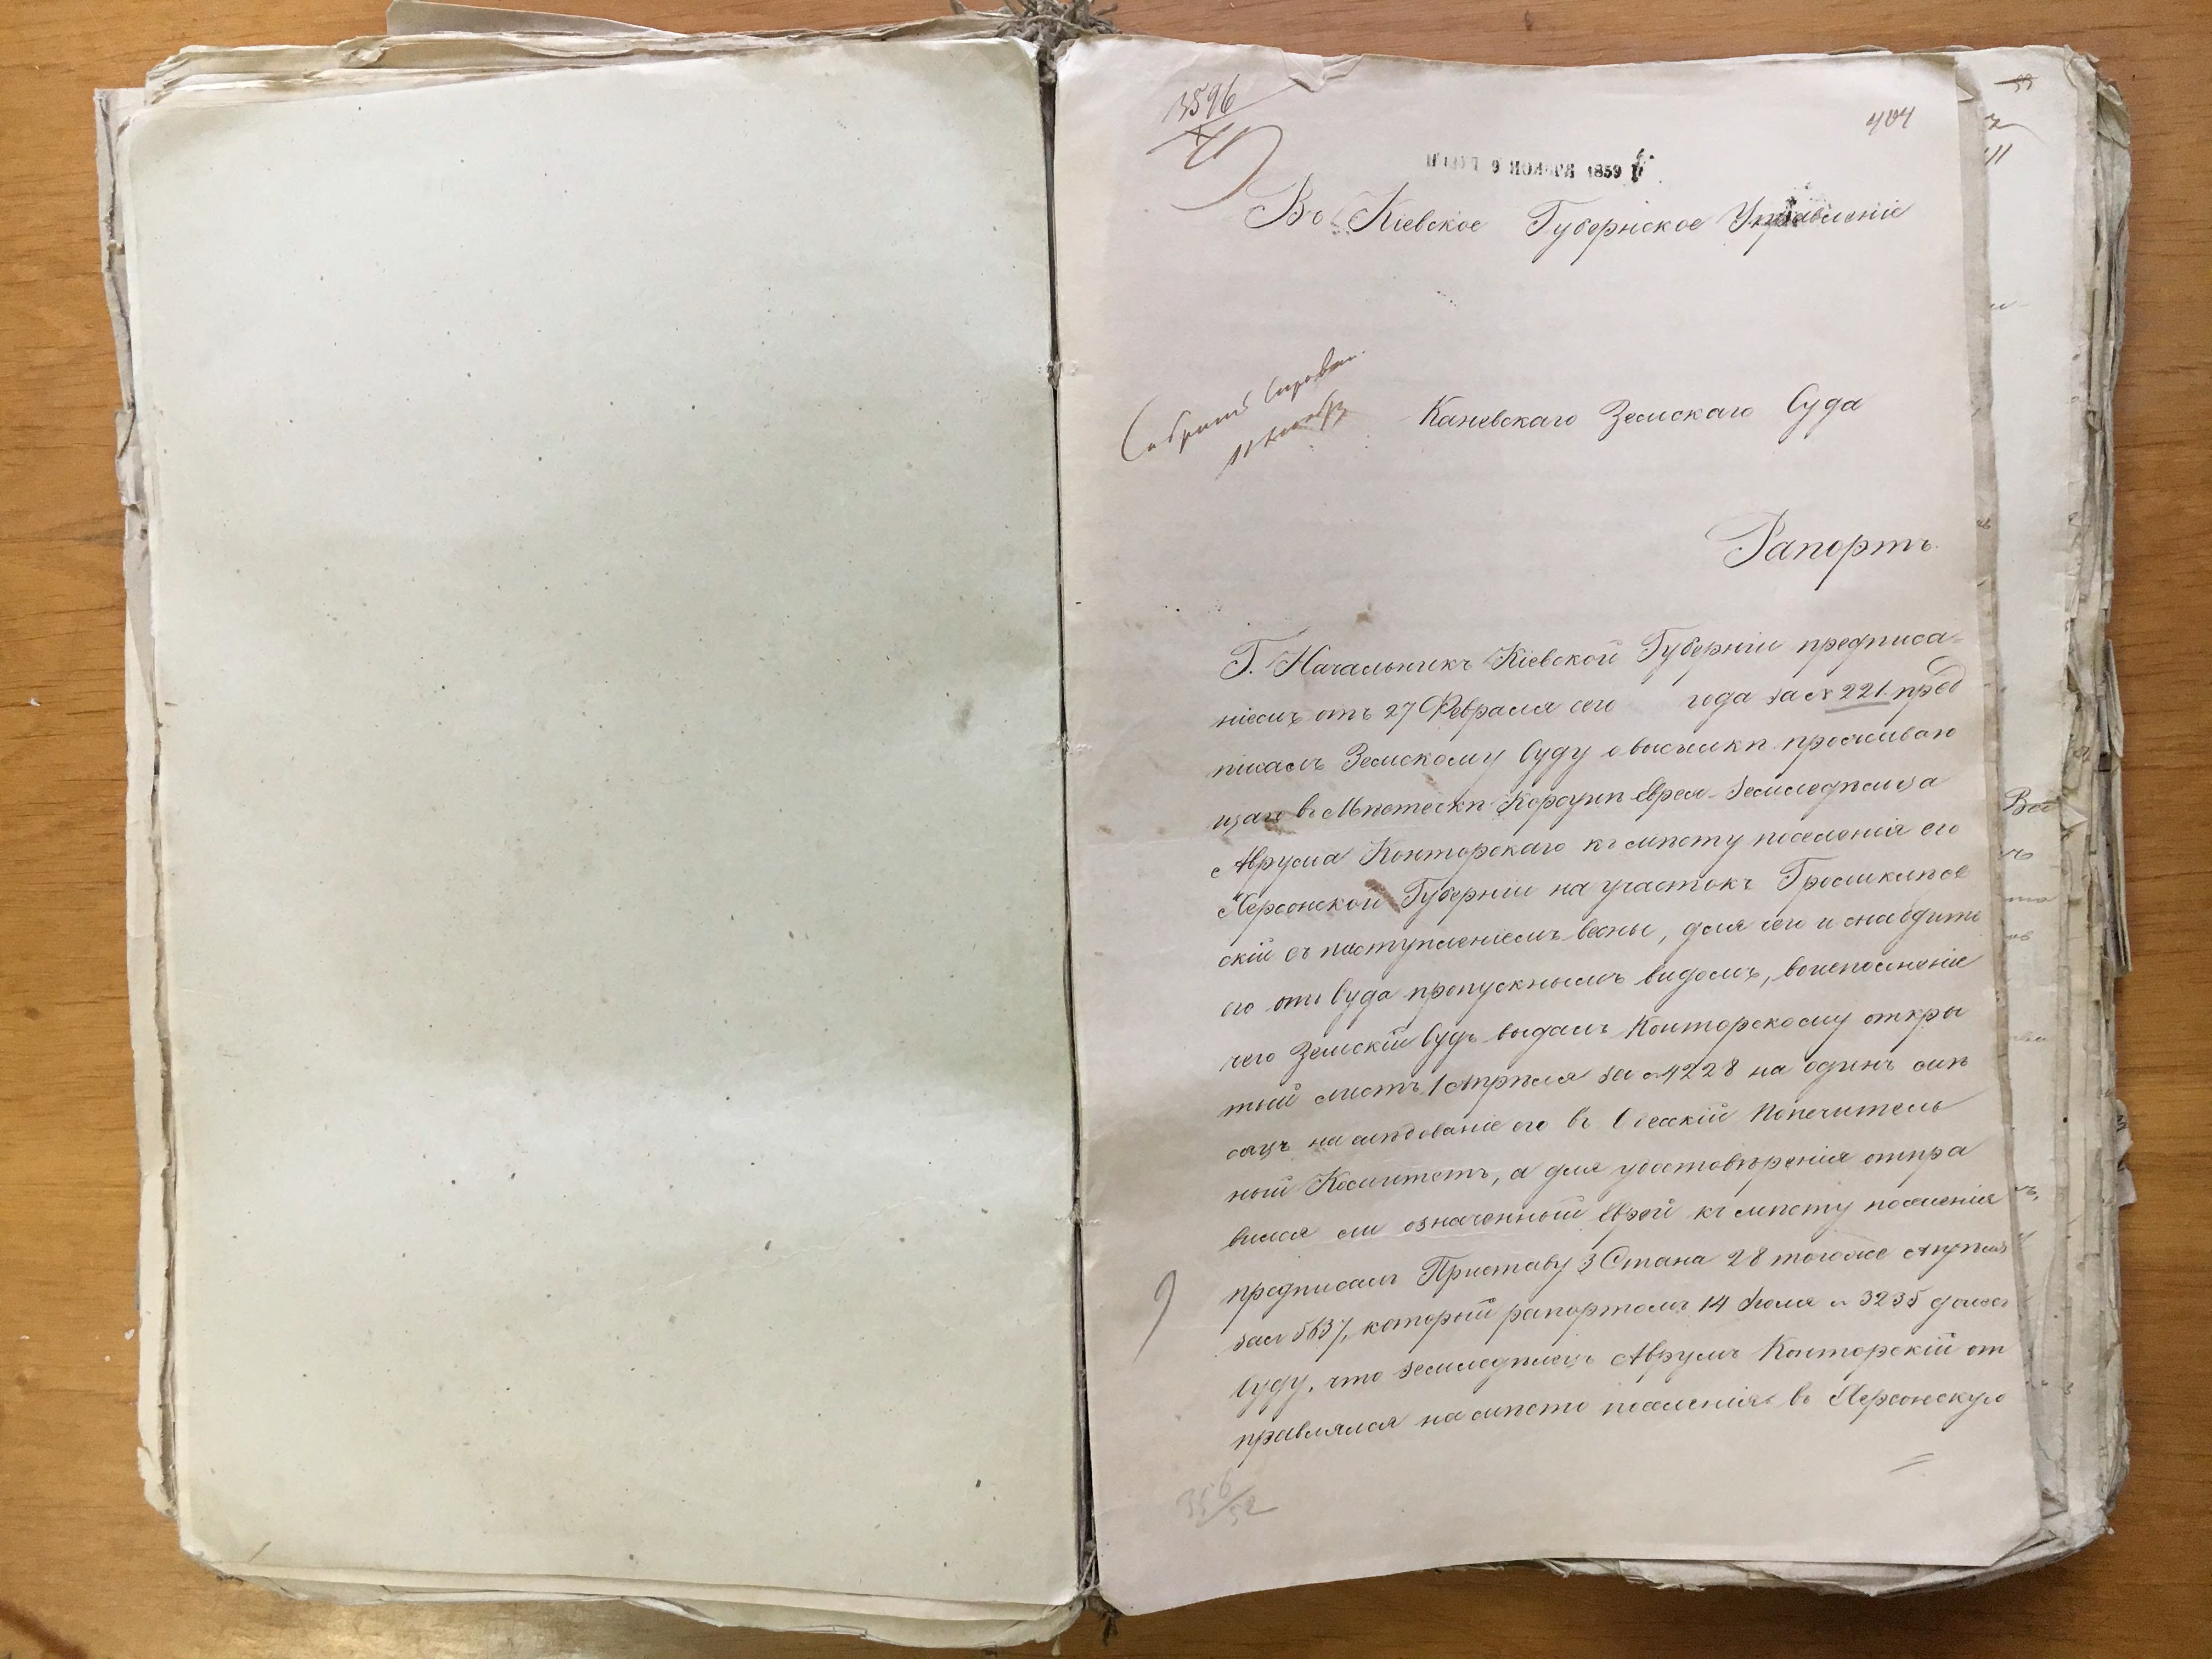 3596
404
9 НОЯБРЯ 1859
Во Кіевское Губернское Управленіе
Собрать Справки
11 Ноября
Каневскаго Земскаго Суда
Рапортъ.
Г. Начальникъ Кіевской Губерніи предписа-
ніемъ отъ 27 Февраля сего года за № 221 пред
писалъ Земскому Суду о высылкѣ проживаю
щаго въ Мѣстечкѣ Корсунѣ Еврея-Земледѣльца
Аврума Конторскаго къ мѣсту поселенія его
Херсонской Губерніи на участокъ
скій съ наступленіемъ весны, для чего и снабдить
его отъ Суда пропускнымъ видомъ, воисполненіе
чего Земскій Судъ выдалъ Конторскому откры
тый листъ 1 Апрѣля за № 4228 на одинъ мѣ
сяцъ на слѣдованіе его въ Одесскій Попечитель
ный Комитетъ, а для удостовѣренія отпра
вился ли означенный Еврей къ мѣсту поселенія
предписалъ Приставу 3 Стана 28 тогоже Апрѣля
за № 5637, который рапортомъ 14 Іюля № 3235 донесъ
Суду, что земледѣлецъ Аврумъ Конторскій от
правлялся на мѣсто поселенія въ Херсонскую
356/52